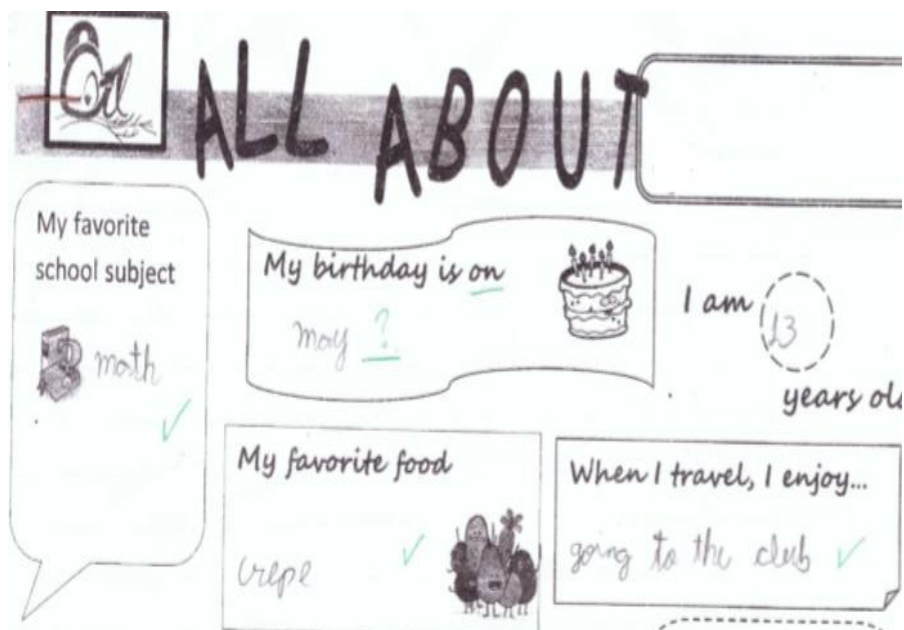 Oil
ALL ABOUT
My favorite
school subject
math
My birthday is on
may ?
I am 13
years old
My favorite food
crepe
When I travel, I enjoy...
going to the club